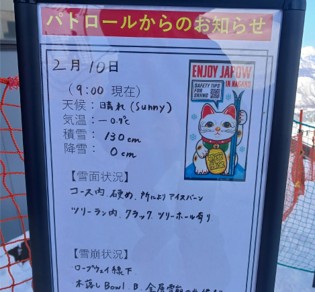 パトロールからのお知らせ
2月10日
(9:00 現在)
天候：晴れ(sunny)
気温：-0.9℃
積雪：130cm
降雪：0cm
ENJOY JAPOW
IN HAKUBA
SAFETY TIPS
FOR SKIING
【雪面状況】
コース内、硬め、所によりアイスバーン
ツリーラン内、クラック、ツリーホール有り
【雪崩状況】
ロープウェイ線下
木落しBowl